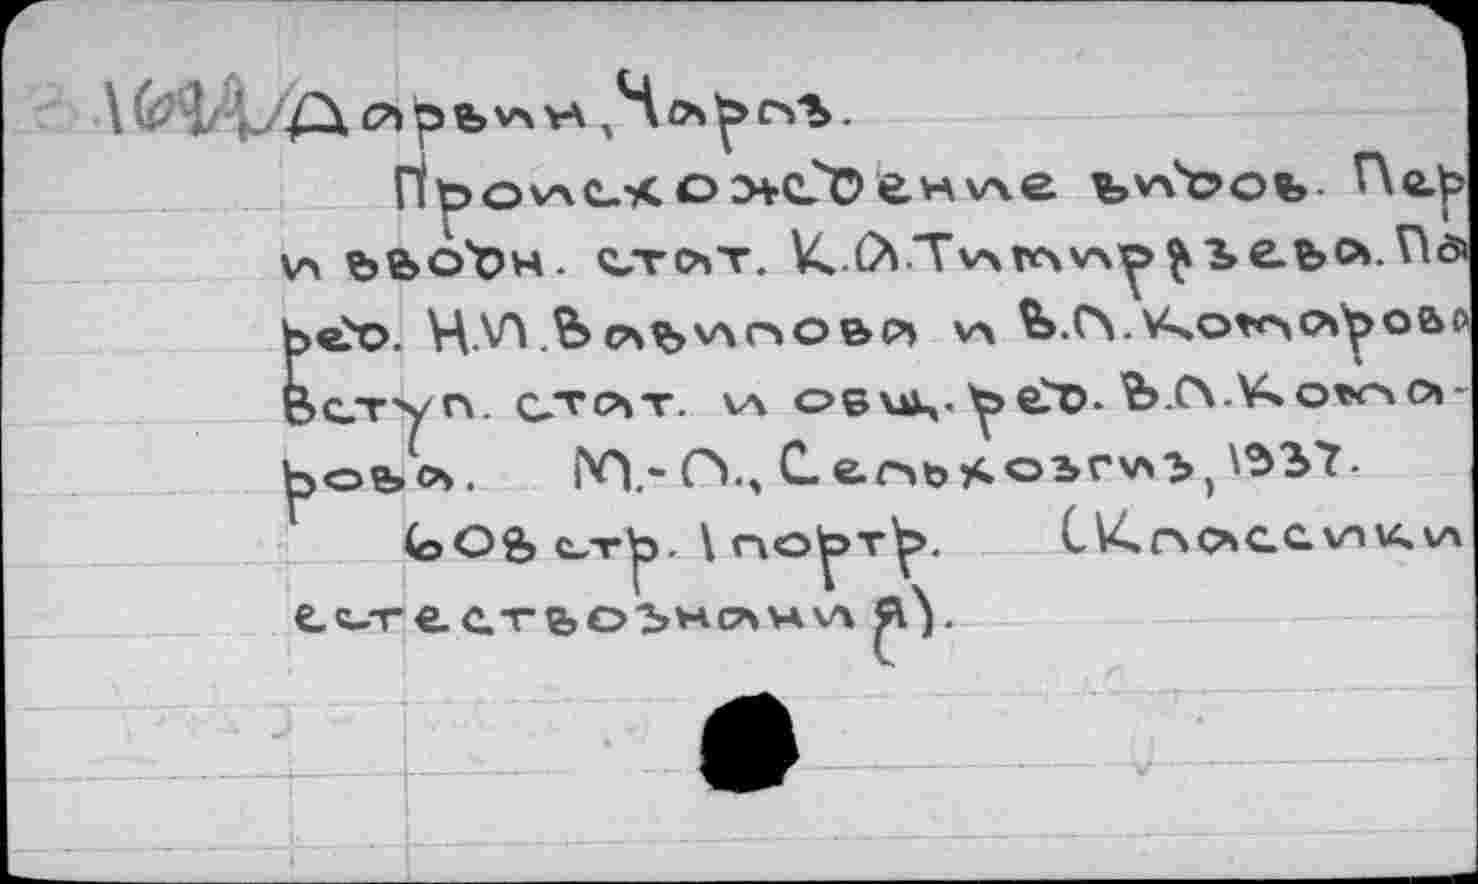 Дарвин, Чарлз.
Происхождение видов. Пер
и вводн. стат. К.А.Тимирязева. По
ред. Н.И.Вавилова и В.Л.Комарова
Вступ. стат. и общ. ред. В.Л.Кома-
рова. М.-Л., Сельхозгиз, 1937.
608 стр. 1 портр. (Классики
естествознания).